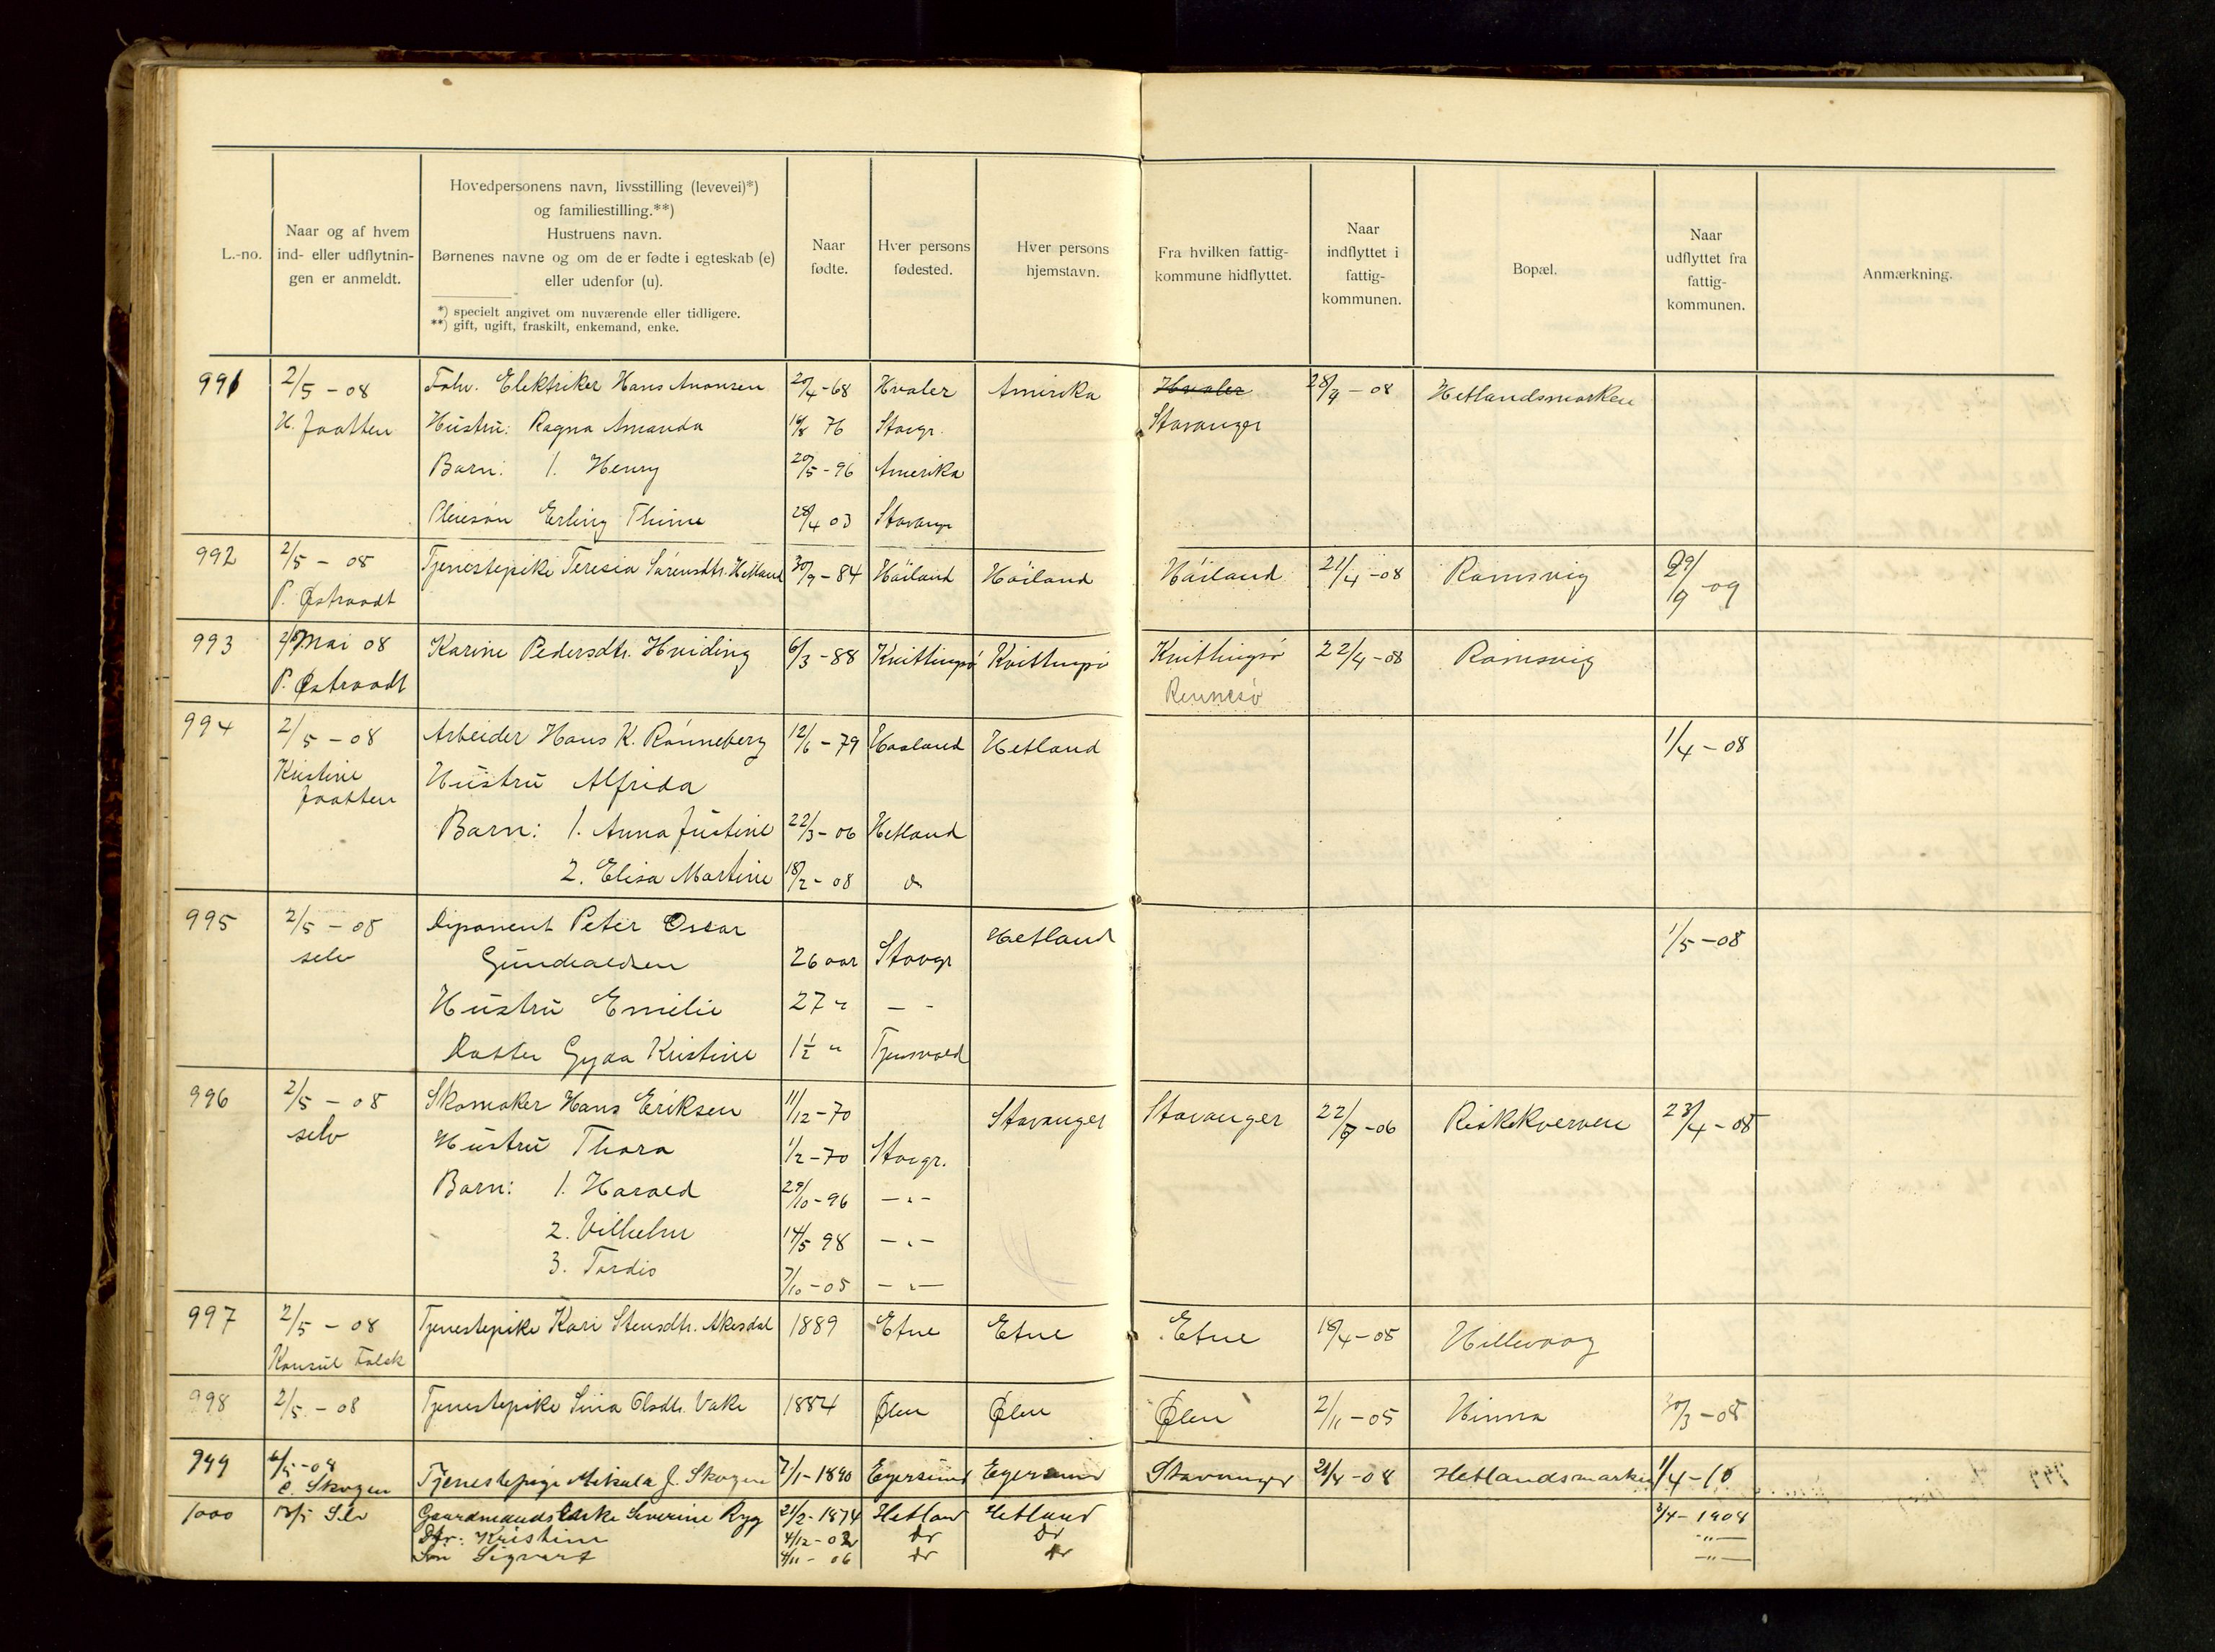 L.-no.
Naar og af hvem
ind- eller udflytnin-
gen er anmeldt.
Hovedpersonens navn, livsstilling (levevei)*)
og familiestilling.**)
Hustruens navn.
Børnenes navne og om de er fødte i egteskab (e)
eller udenfor (u).
*) specielt angivet om nuværende eller tidligere.
**) gift, ugift, fraskilt, enkemand, enke.
Naar
fødte.
Hver persons
fødested.
Hver persons
hjemstavn.
Fra hvilken fattig-
kommune hidflyttet.
Naar
indflyttet i
fattig-
kommunen.
Bopæl.
Naar
udflyttet fra
fattig-
kommunen.
Anmærkning.
991 2/5 - 08 Elektriker Hans 20/4 - 68 Hvaler Amerika Hvaler 28/4 - 08 Hetlandsmarken
H. Jaatten Hustru: Ragna Amanda 76 Stavgr. Stavanger
Barn: 1. Henry 20/5 - 96 Amerika
Pleiesøn Erling Thime 28/4 03 Stavanger
992 2/5 - 08 Tjenestepike Teresia Sørensdtr. Hetland 30/9 - 84 Høiland Høiland Høiland 21/4 - 08 Ramsvig 29/9 - 09
P. Østraadt
993 2/5 Mai 08 Karine Pedersdtr. Hviding 6/3 - 88 Kvittingsø Kvittingsø Kvittingsø 22/4 - 08 Ramsvig
P. Østraadt Rennesø
994 2/5 - 08 Arbeider Hans K. Rønneberg 12/6 - 79 Haaland Hetland 1/4 - 08
Kristine Jaatten Hustru Alfrida
Barn: 1. Anna Justine 22/3 - 06 Hetland
2. Elisa Martine 18/2 - 08 do
995 2/5 - 08 Disponent Peter Oscar Hetland 1/5 - 08
selv Gundvaldsen 26 aar Stavgr
Hustru Emilie 27 " - -
Datter Gyda Kristine 1½ " Tjensvold
996 2/5 - 08 Skomaker Hans Eriksen 11/12 - 70 Stavanger Stavanger 22/ - 06 Riskekverven 23/4 - 08
selv Hustru Thora 1/2 - 70 Stavgr.
Barn: 1. Harald 29/10 - 96 - " -
2. Vilhelm 14/5 98 - " -
3. Tordis 7/10 - 05 - " -
997 2/5 - 08 Tjenestepike Kari Stensdtr. Akesdal 1889 Etne Etne Etne 18/4 - 08 Hillevaag
Konsul Falck
998 2/5 - 08 Tjenestepike Sina Olsdtr. Vake 1884 Ølen Ølen Ølen 2/11 - 05 Hinna 30/3 - 08
999 6/5 - 08 Tjenestepige Mikala J. Skogen 7/1 - 1890 Egersund Egersund Stavanger 21/4 - 08 Hetlandsmarken 1/4 - 10
C. Skogen
1000 Selv Gaardmands Enke Severine Ryg 21/2 - 1874 Hetland Hetland 2/4 - 1908
Dtr: Kristine 4/12 - 02 do do - " -
Søn Sigvart 4/11 - 06 do do - " -